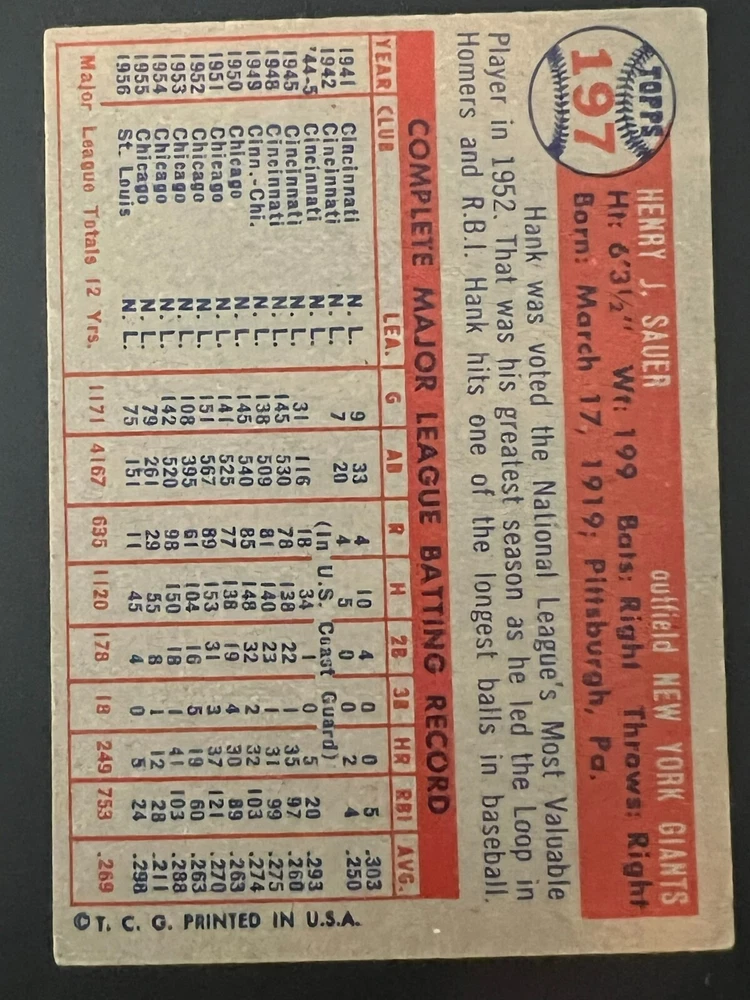 TOPPS
197
HENRY J. SAUER outfield NEW YORK GIANTS
Ht: 6'3½" Wt: 199 Bats: Right Throws: Right
Born: March 17, 1919; Pittsburgh, Pa.
Hank was voted the National League's Most Valuable
Player in 1952. That was his greatest season as he led the Loop in
Homers and R.B.I. Hank hits one of the longest balls in baseball.
COMPLETE MAJOR LEAGUE BATTING RECORD
YEAR CLUB LEA. G AB R H 2B 3B HR RBI AVG.
1941 Cincinnati N. L. 9 33 4 10 4 0 0 5 .303
1942 Cincinnati N. L. 7 20 4 5 0 0 2 4 .250
'44-5 Cincinnati N. L. (In U.S. Coast Guard)
1945 Cincinnati N. L. 31 116 18 34 1 0 5 20 .293
1948 Cincinnati N. L. 145 530 78 138 22 1 35 97 .260
1949 Cinn.-Chi. N. L. 138 509 81 140 23 1 31 99 .275
1950 Chicago N. L. 145 540 85 148 32 2 32 103 .274
1951 Chicago N. L. 141 525 77 138 19 4 30 89 .263
1952 Chicago N. L. 151 567 89 153 31 3 37 121 .270
1953 Chicago N. L. 108 395 61 104 16 5 19 60 .263
1954 Chicago N. L. 142 520 98 150 18 1 41 103 .288
1955 Chicago N. L. 79 261 29 55 8 1 12 28 .211
1956 St. Louis N. L. 75 151 11 45 4 0 5 24 .298
Major League Totals 12 Yrs. 1171 4167 635 1120 178 18 249 753 .269
© T. C. G. PRINTED IN U.S.A.